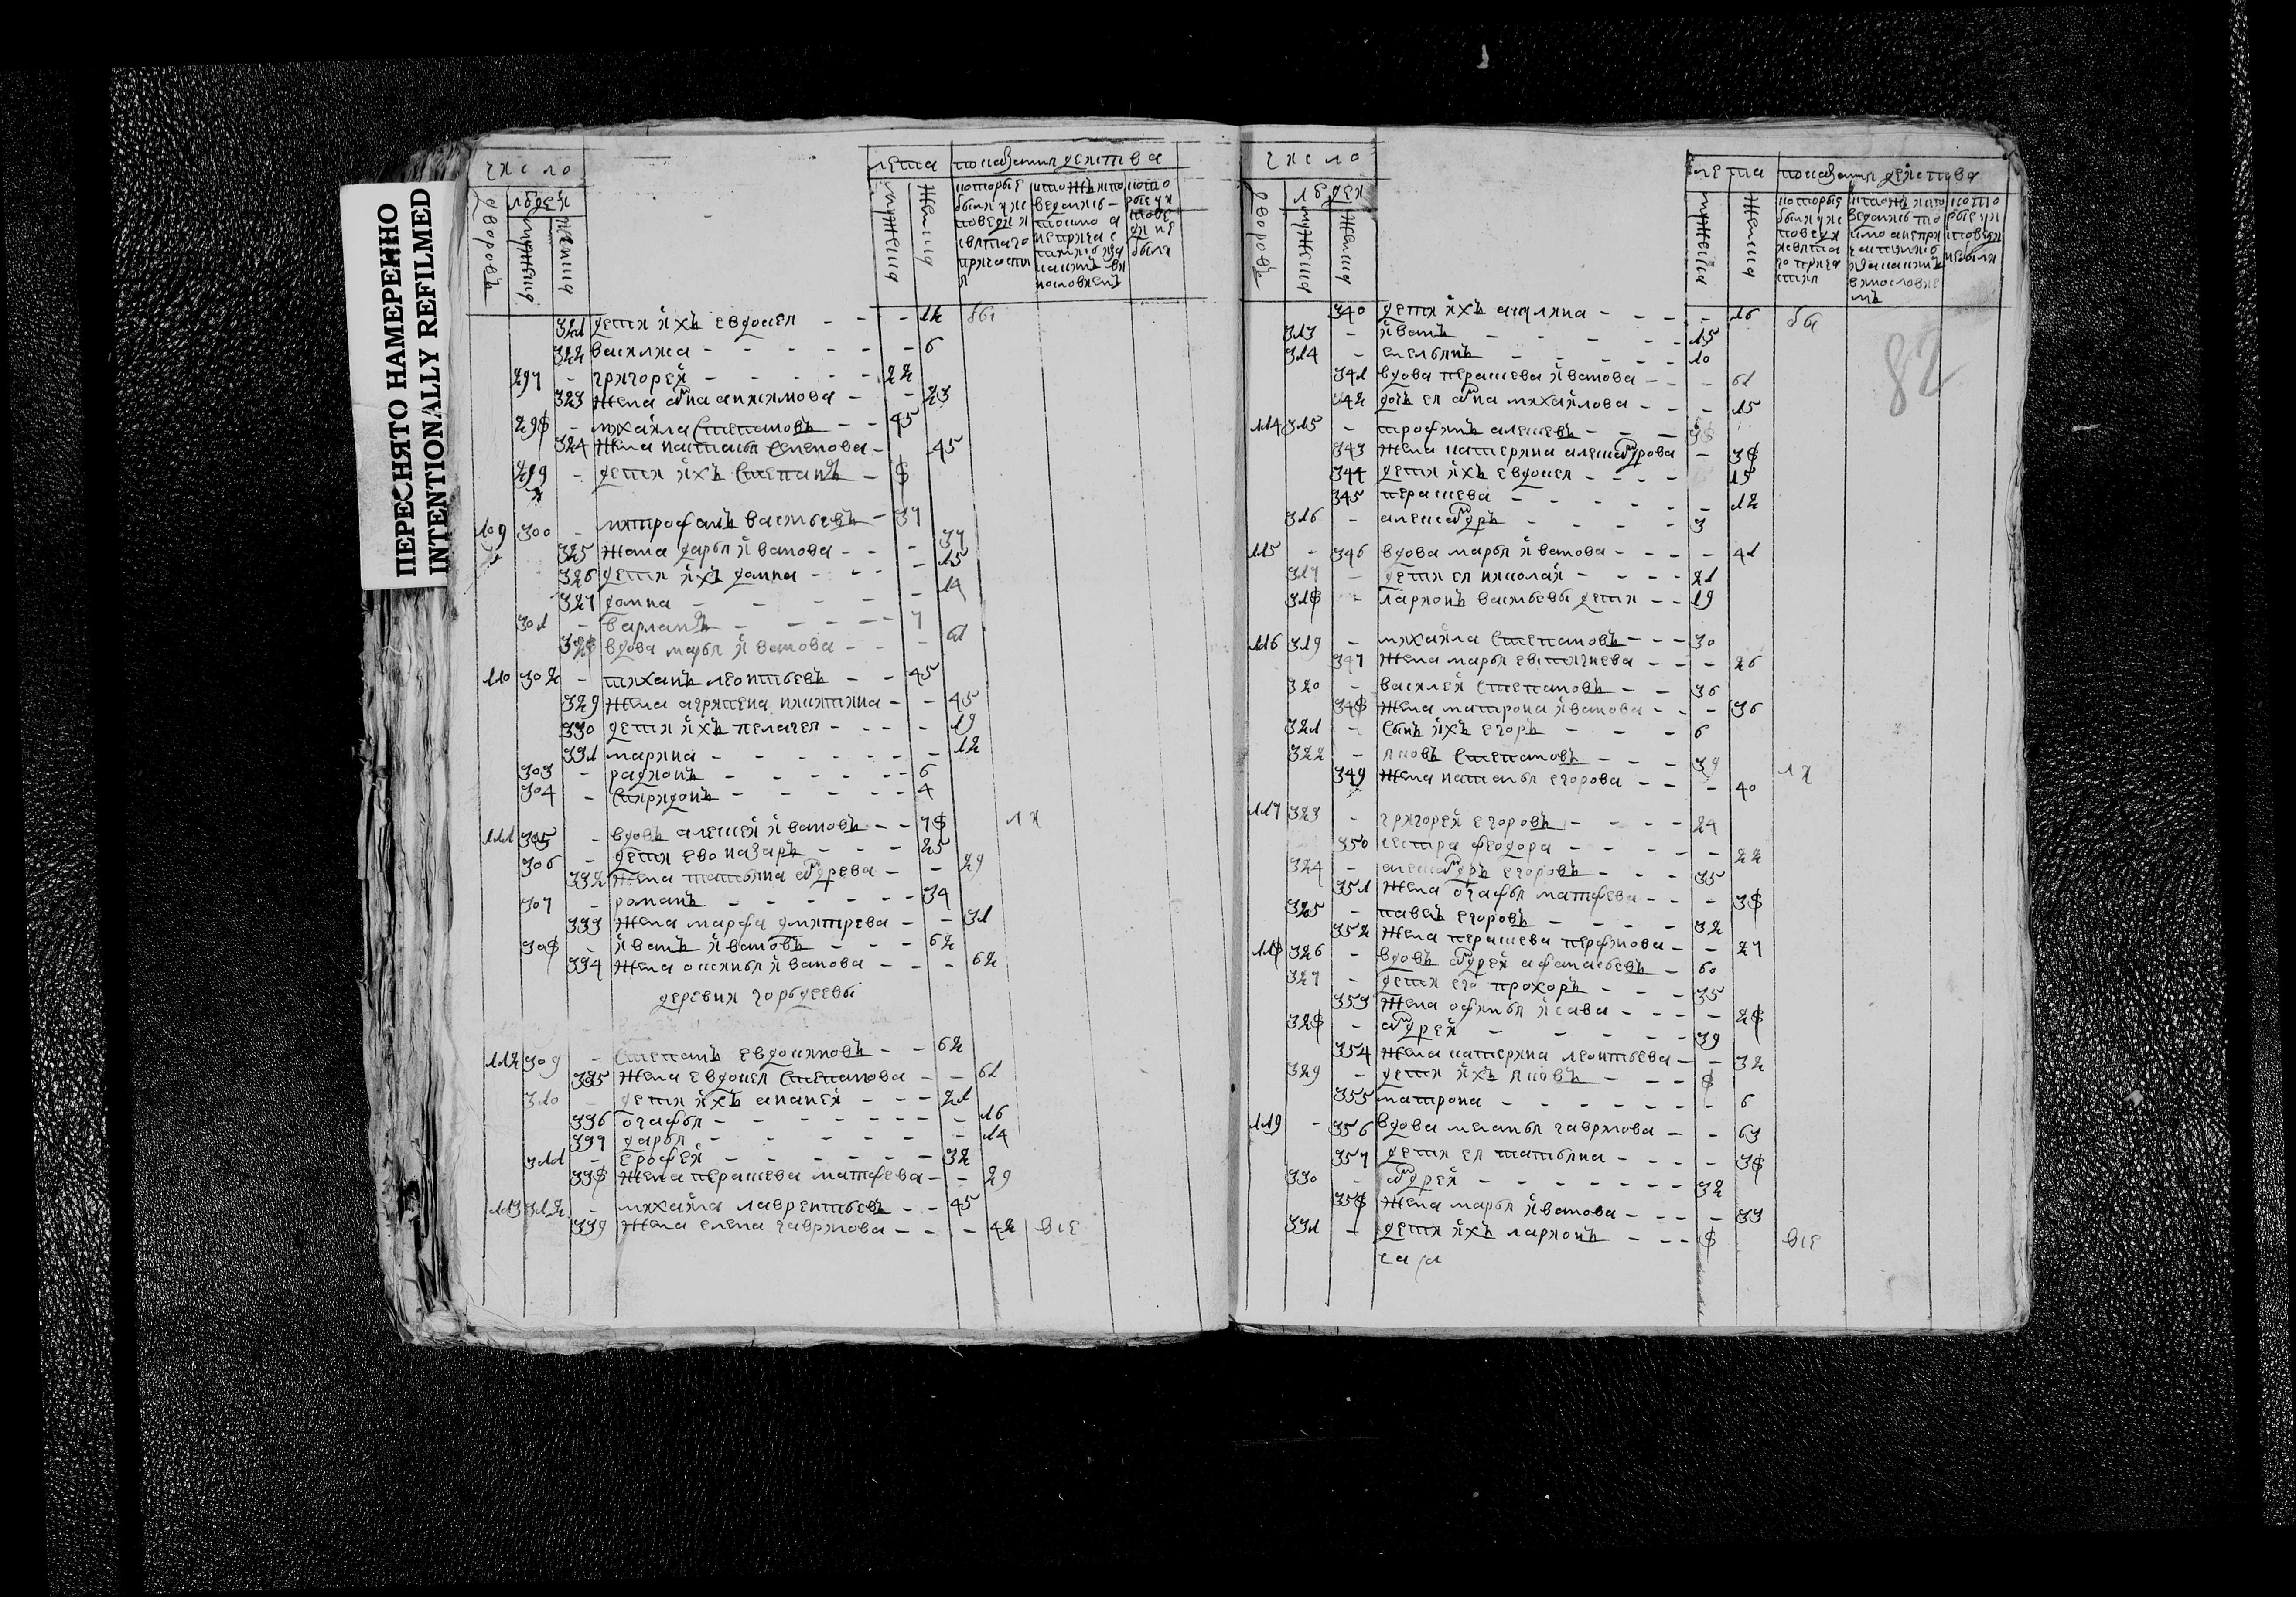 ПЕРЕСНЯТО НАМЕРЕННО
INTENTIONALLY REFILMED
число
лета показания действа
дворовъ
людей
мужеска
женска
мужеска
женска
которые были у исповеди и святаго причастия
321 дети ихъ евдокея - - - 12 бы
322 василиса - - - 6
297 - григорей - - - 22
323 жена анна анисимова - - 23
298 - михаила степановъ - - 45
324 жена наталья семенова - 45
299 - дети ихъ степанъ - 8
109 300 - митрофанъ васильевъ - 37
325 жена дарья иванова - - - 37
326 дети ихъ домна - - - 15
327 домна - - - 14
301 - варламъ - - - 7
328 вдова марья иванова - - - 61
110 302 - тиханъ леонтьевъ - - 45
329 жена агрипена никитина - - 45
330 дети ихъ пелагея - - - 19
331 марина - - - 12
303 - радионъ - - - 6
304 - спиридонъ - - - 4
111 305 - вдовъ алексей ивановъ - - 78 ли
306 - дети ево назаръ - - - 25
332 жена татьяна андрева - - 29
307 - романъ - - - 34
333 жена марфа дмитрева - - 31
308 - иванъ ивановъ - - - 62
334 жена оксинья иванова - - - 62
деревни гордеевы
112 309 - степанъ евдокимовъ - - 62
335 жена евдокея степанова - - 61
310 - дети ихъ ананей - - - 21
336 огафья - - - 16
337 дарья - - - 14
311 - ерофей - - - 32
338 жена парасковья матфева - - 29
113 312 - михаила лаврентьевъ - - 45
339 жена елена гаврилова - - - 42
число
лета показания действа
дворовъ
людей
мужеска
женска
мужеска
женска
82
340 дети ихъ акулина - - - 16 бы
313 - иванъ - - - 15
314 - емельянъ - - - 10
341 вдова параскева иванова - - - 61
342 дочь ея анна михайлова - - - 15
114 315 - трофимъ алексевъ - - - 38
343 жена катерина александрова - 38
344 дети ихъ евдокея - - - 15
345 параскева - - - 12
316 - александръ - - - 3
115 - 346 вдова марья иванова - - - 41
317 - дети ея николай - - - 21
318 - ларионъ васильевы дети - - 19
116 319 - михаила степановъ - - - 30
347 жена марья евстигнева - - - 26
320 - василей степановъ - - 36
348 жена матрона иванова - - - 36
321 - сынъ ихъ егоръ - - - 6
322 - яковъ степановъ - - - 39
349 жена наталья егорова - - - 40 ли
117 323 - григорей егоровъ - - - 24
350 сестра феодора - - - 22
324 - александръ егоровъ - - - 35
351 жена огафья матфева - - - 38
325 - павелъ егоровъ - - - 32
352 жена параскева перфилова - - 27
118 326 - вдовъ андрей афанасьевъ - 60
327 - дети его прохоръ - - - 35
353 жена офимья исава - - - 28
328 - андрей - - - 39
354 жена катерина леонтьева - - 32
329 - дети ихъ яковъ - - - 8
355 матрона - - - 6
119 - 356 вдова маланья гаврилова - - 63
357 дети ея татьяна - - - 38
330 - андрей - - - 32
358 жена марья иванова - - - 33
331 - дети ихъ ларионъ - - - 8